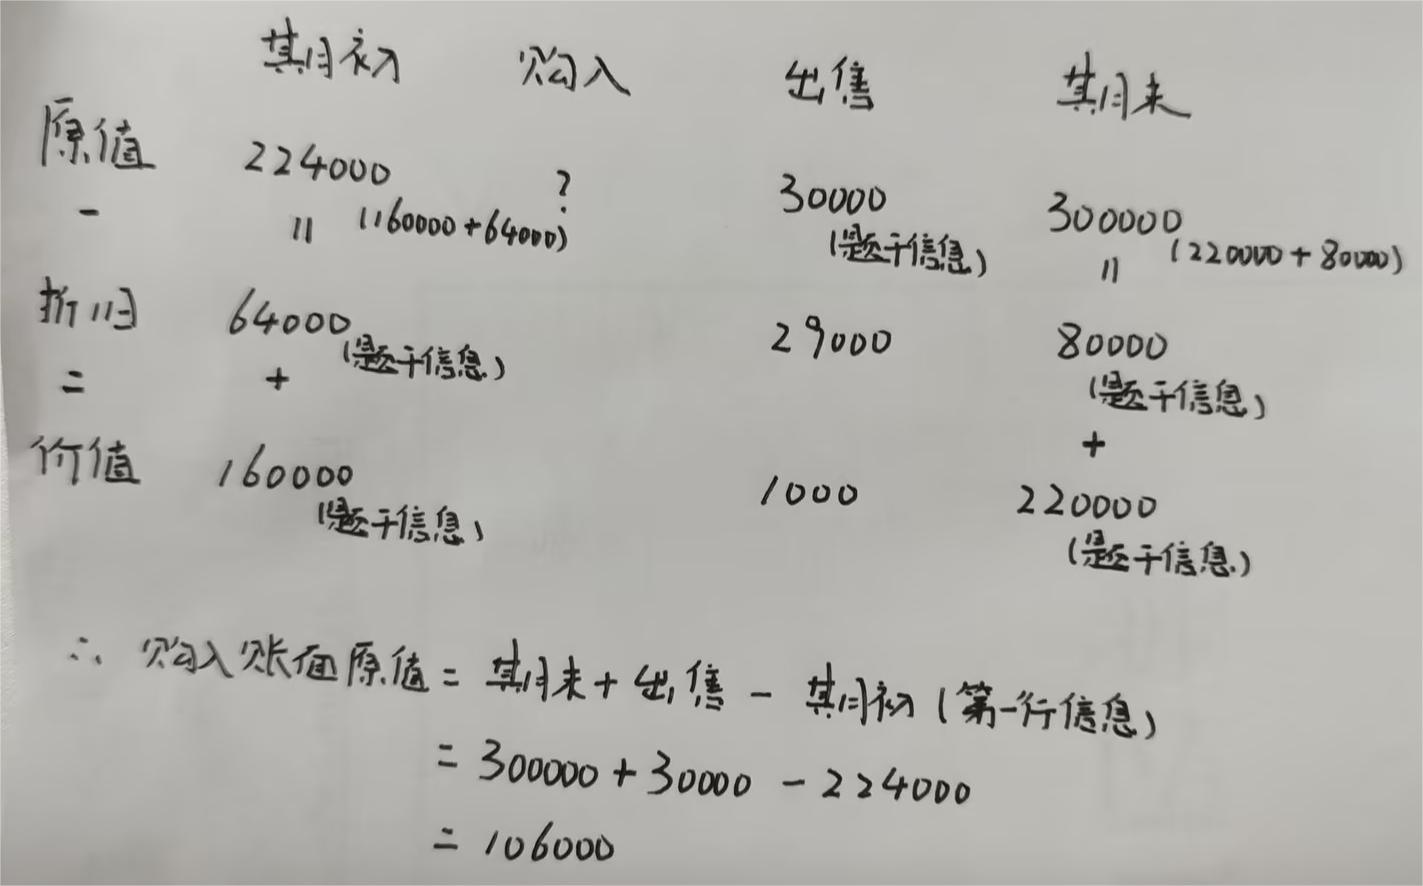 期初 购入 出售 期末
原值 224000 ? 30000 300000
- || (160000+64000) (题干信息) || (220000+80000)
折旧 64000 29000 80000
(题干信息) (题干信息)
= + +
价值 160000 1000 220000
(题干信息) (题干信息)
∴ 购入账面原值 = 期末 + 出售 - 期初 (第一行信息)
= 300000 + 30000 - 224000
= 106000